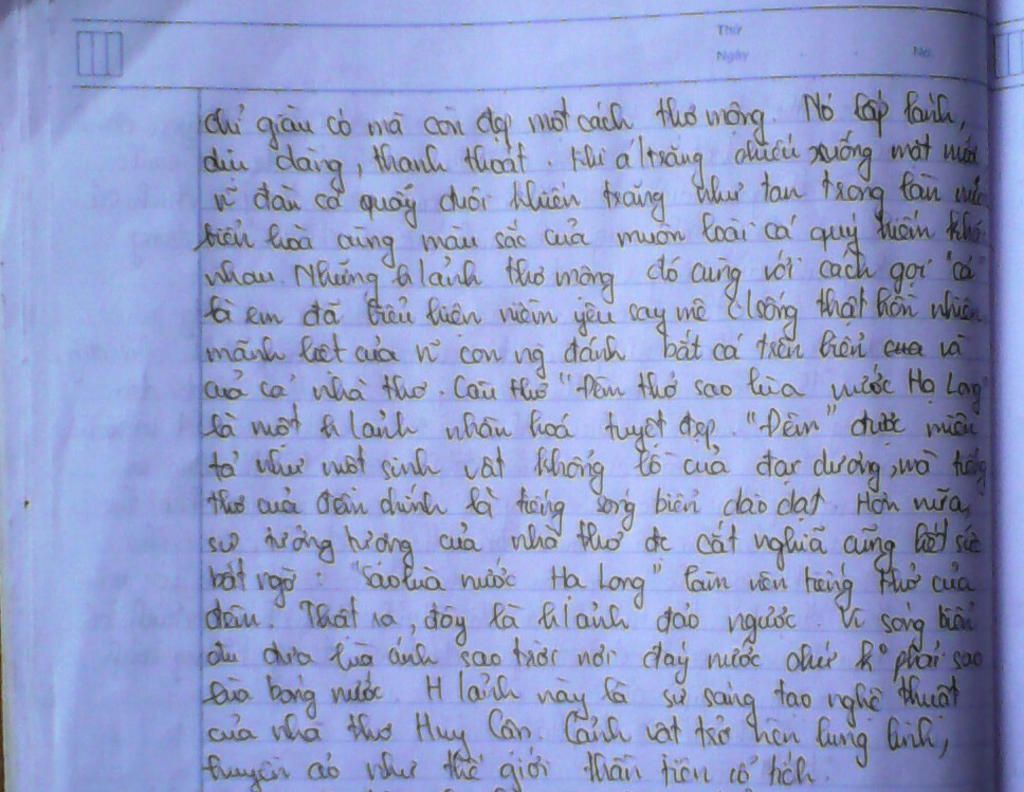 Thứ
Ngày No.
chỉ giàu có mà còn đẹp một cách thơ mộng. Nó lấp lánh,
dịu dàng, thanh thoát. Khi á/trăng chiếu xuống mặt nước
vì đàn cá quẫy đuôi khiến trăng như tan trong làn nước
biển hoà cùng màu sắc của muôn loài cá quý hiếm khác
nhau. Những h/ảnh thơ mộng đó cùng với cách gọi "cá"
là em đã biểu hiện niềm yêu say mê c/sống thật hồn nhiên
mãnh liệt của con ng đánh bắt cá trên biển và
của cả nhà thơ. Câu thơ "Đêm thở sao lùa nước Hạ Long"
là một h/ảnh nhân hoá tuyệt đẹp. "Đêm" được miêu
tả như một sinh vật khổng lồ của đại dương, mà tiếng
thở của đêm chính là tiếng sóng biển dào dạt. Hơn nữa,
sự tưởng tượng của nhà thơ đc cắt nghĩa cũng hết sức
bất ngờ: "Sao lùa nước Hạ Long" làm nên tiếng thở của
đêm. Thật ra, đây là h/ảnh đảo ngược. Vì sóng biển
đu đưa lùa ánh sao trời nơi đáy nước chứ k° phải sao
lùa bóng nước. H/ảnh này là sự sáng tạo nghệ thuật
của nhà thơ Huy Cận. Cảnh vật trở nên lung linh,
huyền ảo như thế giới thần tiên cổ tích.